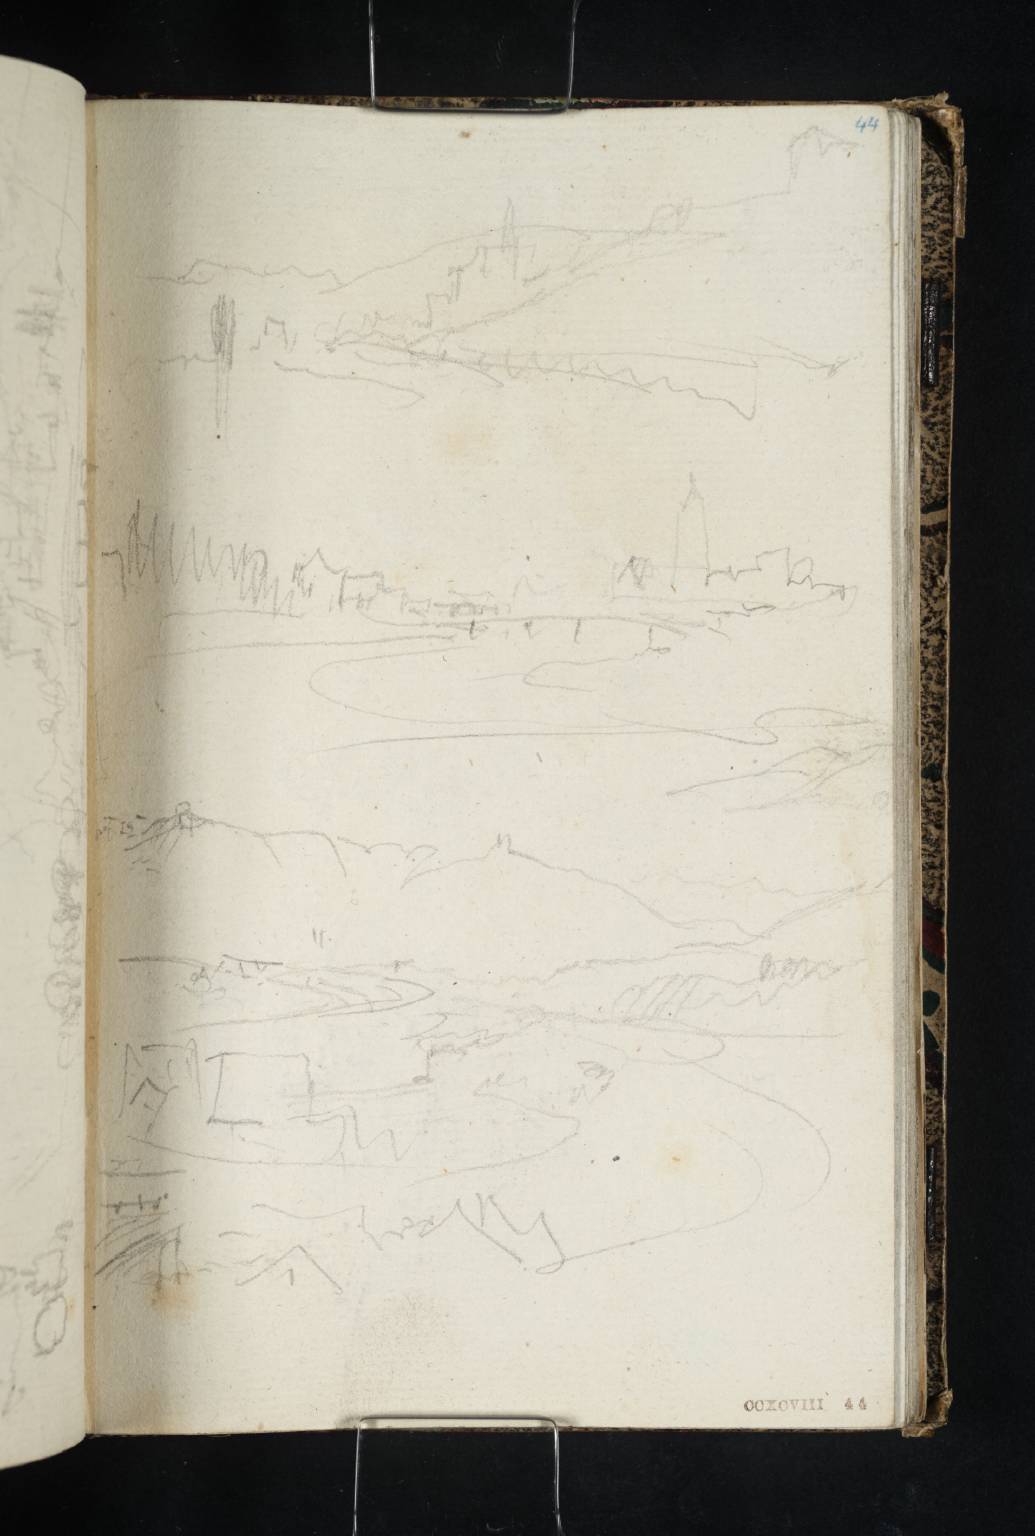 44
CCXCVIII 44